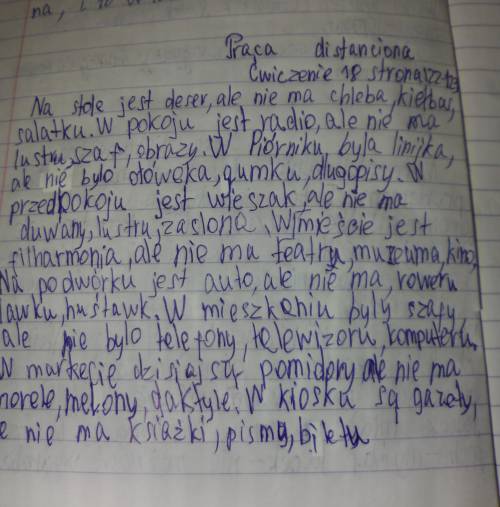 na,
Praca distanciona
Ćwiczenie 18 strona 122-123
Na stole jest deser, ale nie ma chleba, kiełbas,
salatku. W pokoju jest radio, ale nie ma
lustru, szaf, obrazy. W Piórniku była linijka,
ale nie było otoweka, gumku, dlugopisy. W
przedpokoju jest wieszak, ale nie ma
duwany, lustru, zaslona. W mieście jest
filharmonia, ale nie ma teatru, muzeuma, kino,
Na podwórku jest auto, ale nie ma, roweru
lawku, huśtawk. W mieszkeniu były szafy
ale nie bylo telefony, telewizoru, komputeru.
W markecie dzisiaj są pomidory ale nie ma
morele, melony, daktyle. W kiosku są gazety,
e nie ma książki, pismy, biletu